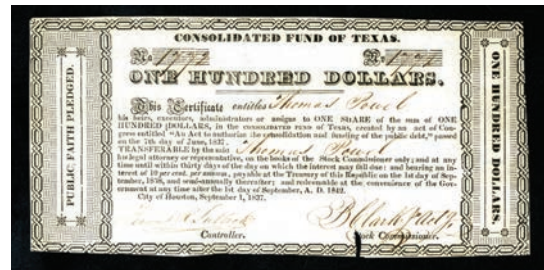 CONSOLIDATED FUND OF TEXAS.
No No
ONE HUNDRED DOLLARS.
This Certificate entitles Thomas Powel
his heirs, executors, administrators or assigns to ONE SHARE of the sum of ONE
HUNDRED DOLLARS, in the CONSOLIDATED FUND of Texas, created by an act of Con-
gress entitled "An Act to authorize the consolidation and funding of the public debt," passed
on the 7th day of June, 1837.
TRANSFERABLE by the said Thomas Powel
his legal attorney or representative, on the books of the Stock Commissioner only; and at any
time until within thirty days of the day on which the interest may fall due: and bearing an in-
terest of 10 per cent. per annum, payable at the Treasury of this Republic on the 1st day of Sep-
tember, 1838, and semi-annually thereafter; and redeemable at the convenience of the Gov-
ernment at any time after the 1st day of September, A. D. 1842.
City of Houston, September 1, 1837.
Controller. Stock Commissioner.
PUBLIC FAITH PLEDGED.
ONE HUNDRED DOLLARS.